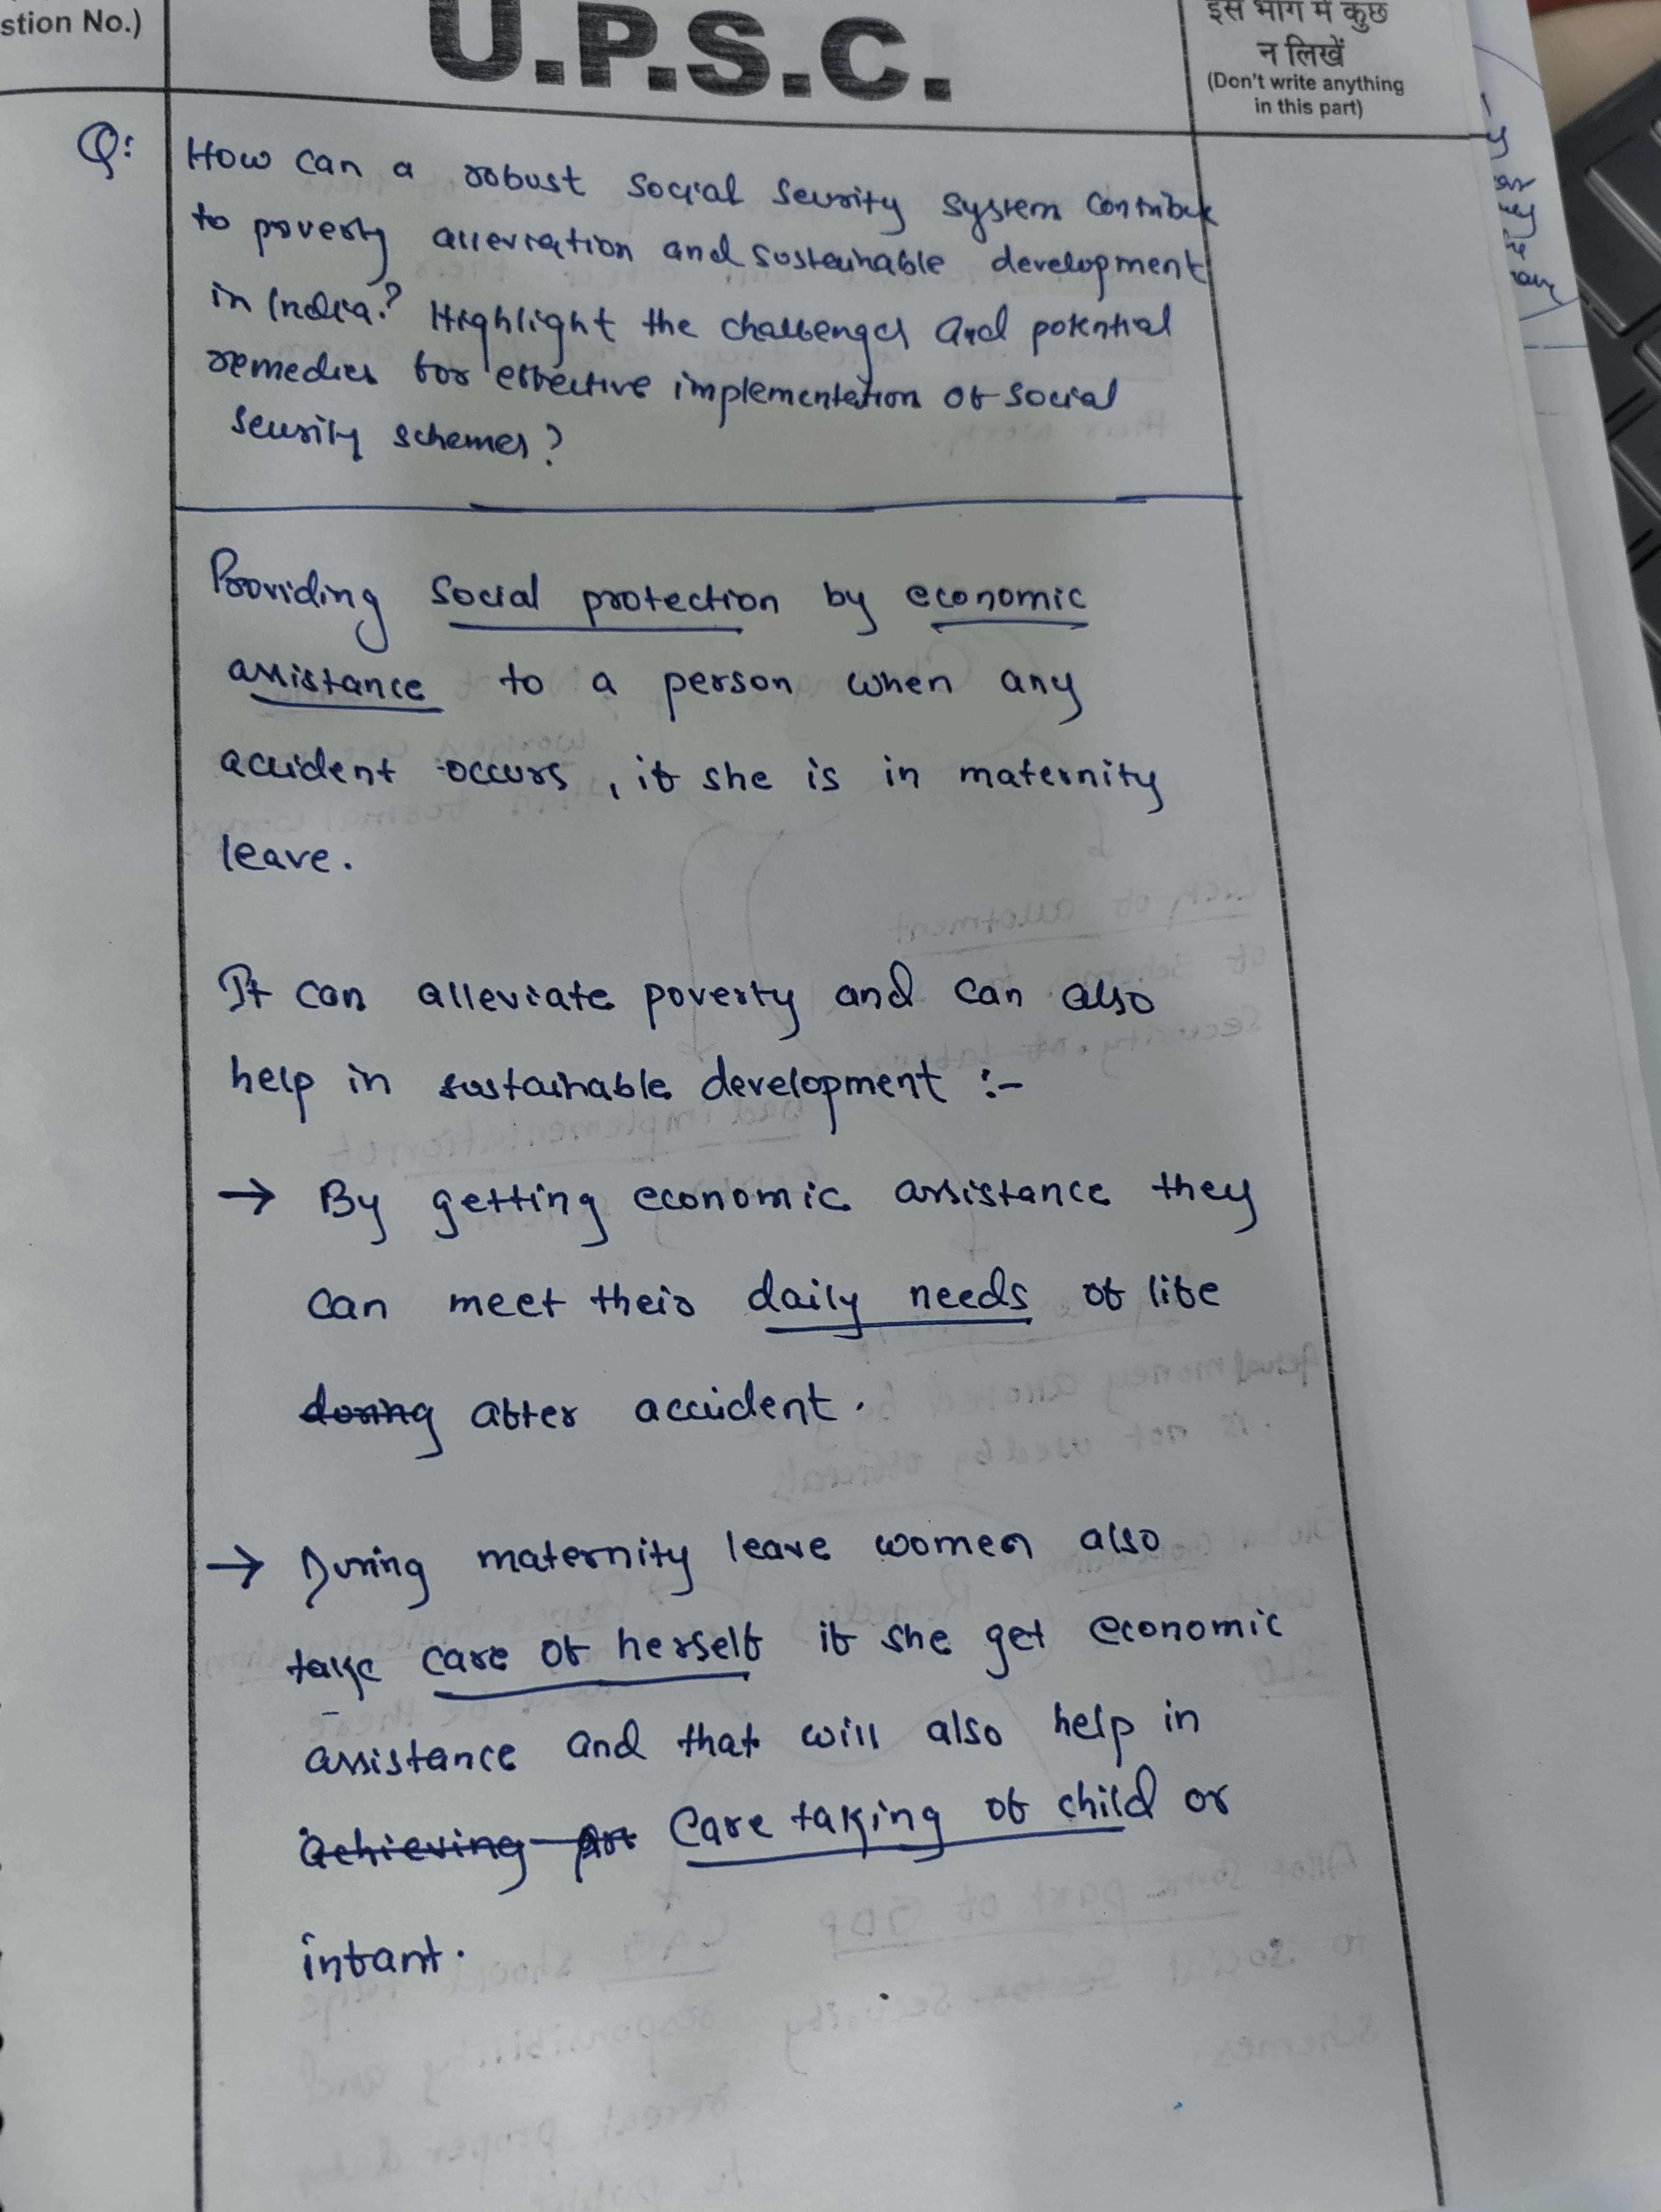 stion No.)
U.P.S.C.
इस भाग में कुछ
न लिखें
(Don't write anything
in this part)
Q: How can a robust social security system contribute
to poverty alleviation and sustainable development
in India? Highlight the challenges and potential
remedies for effective implementation of social
security schemes?
Providing social protection by economic
assistance to a person when any
accident occurs, if she is in maternity
leave.
It can alleviate poverty and can also
help in sustainable development :-
→ By getting economic assistance they
can meet their daily needs of life
during after accident.
→ During maternity leave women also
take care of herself if she get economic
assistance and that will also help in
achieving care taking of child or
infant.